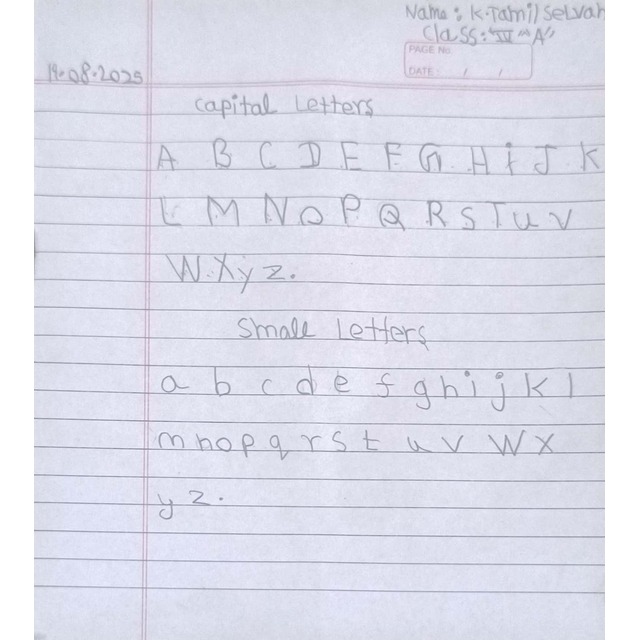 Name : K.Tamil Selvan
Class : IV "A"
PAGE No.
DATE : / /
19.08.2025
Capital Letters
A B C D E F G H i J K
L M N O P Q R S T U V
W.X y z.
Small Letters
a b c d e f g h i j k l
m n o p q r s t u v w x
y z.